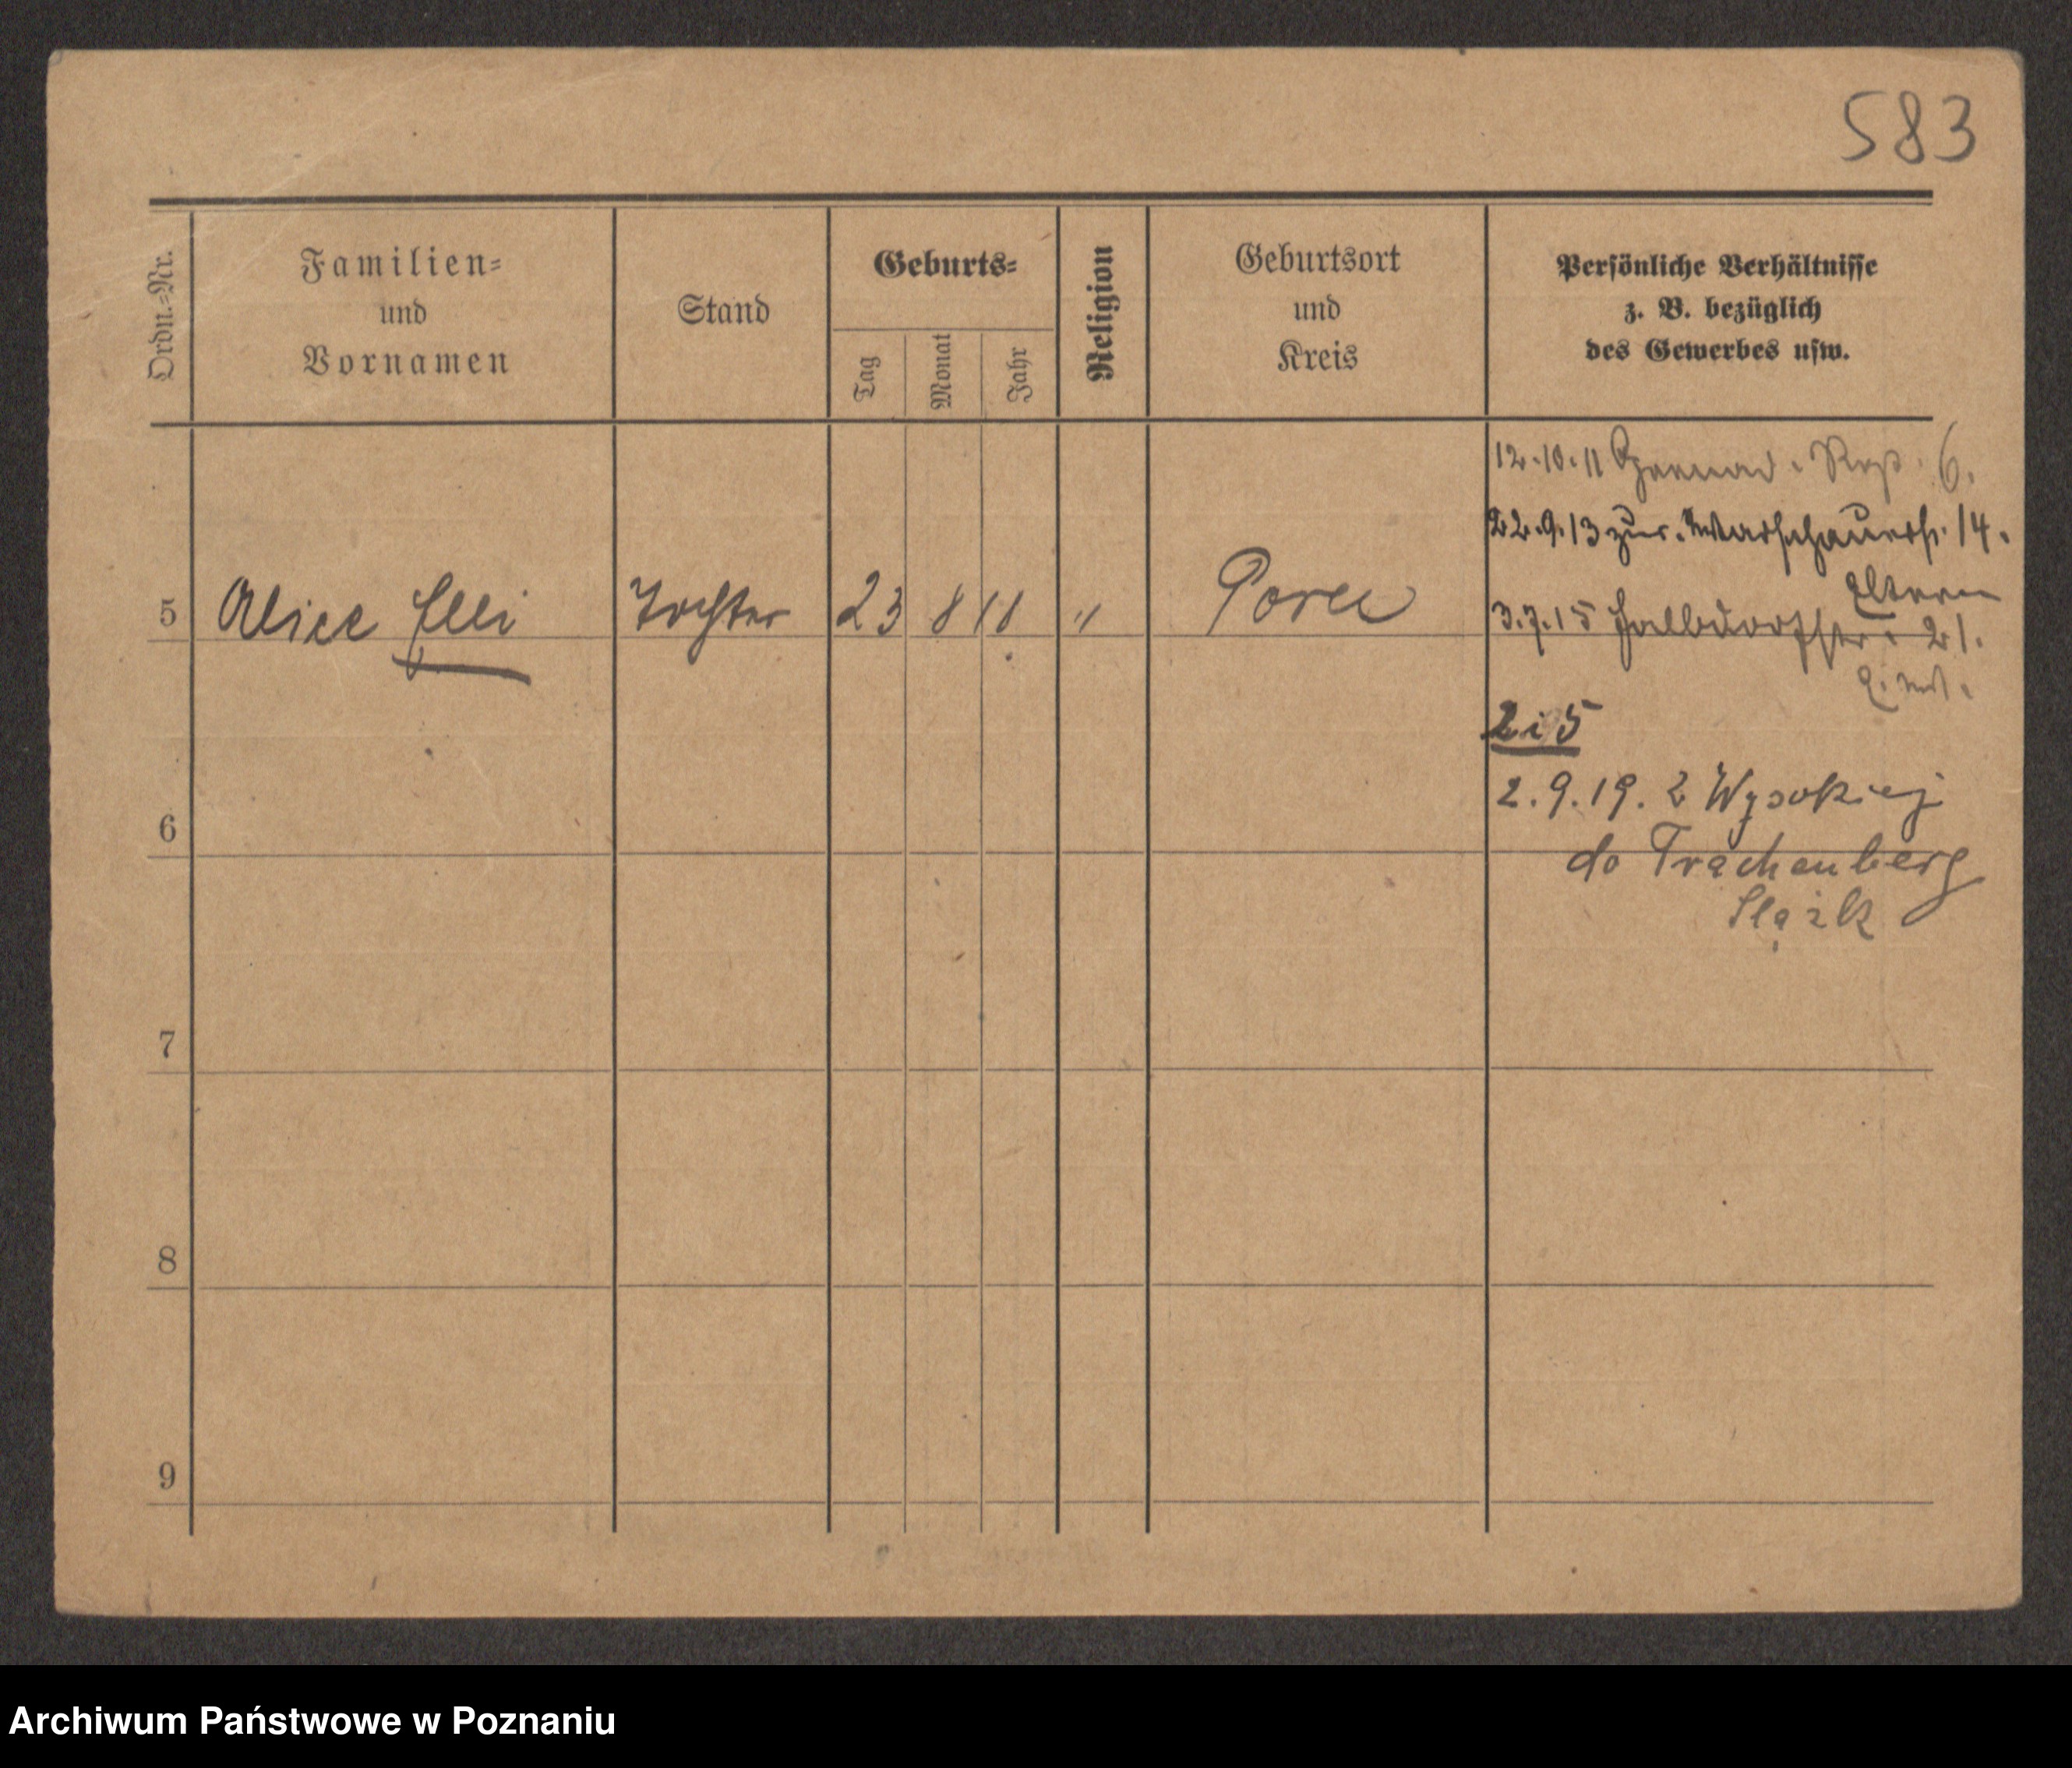 583
Ordn.=Nr.
Familien=
und
Vornamen
Stand
Geburts=
Tag
Monat
Jahr
Religion
Geburtsort
und
Kreis
Persönliche Verhältnisse
z. B. bezüglich
des Gewerbes usw.
12.10.11 6.
22.9.13 zur. Warschauerstr. 14.
Eltern
5 Alice Elli Tochter 23 8 11 " Posen 3.7.15 Halbdorfstr. 21.
2 i 5
2.9.19. z Wysokiej
6
do Trachenberg
Slązk
7
8
9
Archiwum Państwowe w Poznaniu